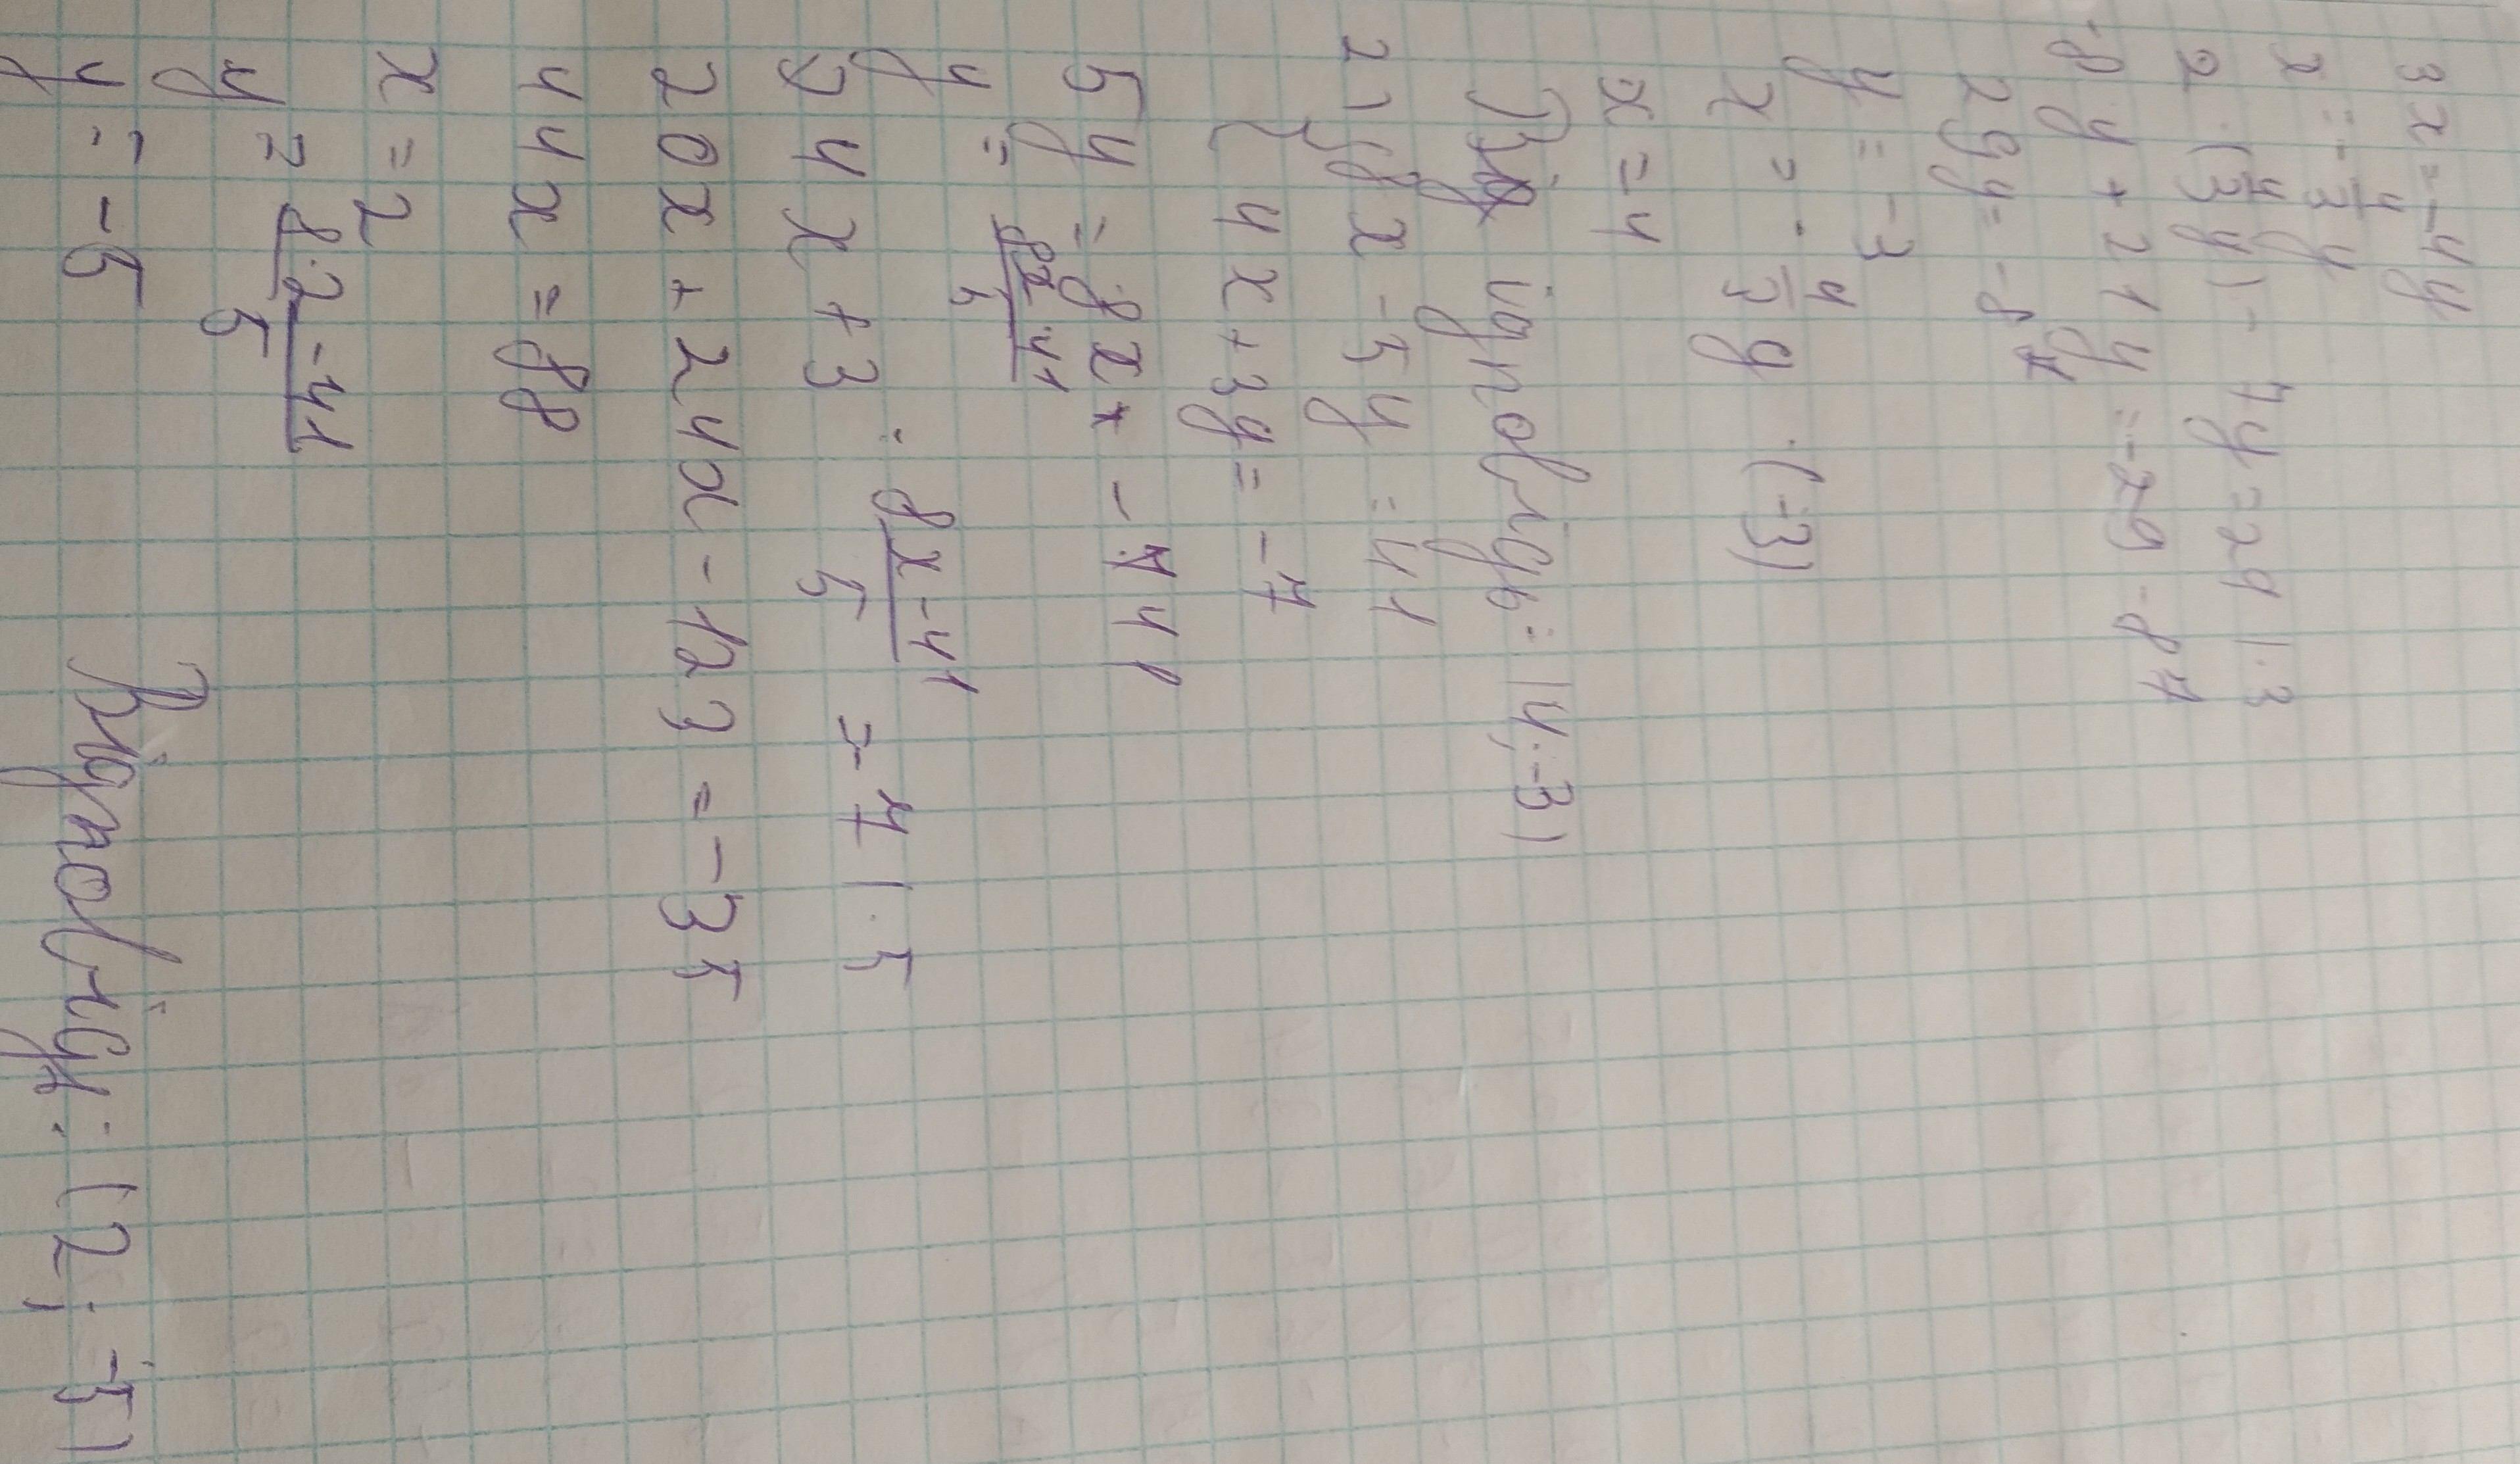 3x = -4y
x = -4/3 y
2 · (4/3 y) - 7y = 29 | · 3
-8y + 21y = -29 · 87
29y = -87
y = -3
x = - 4/3 y · (-3)
x = 4
Відповідь: (4; -3)
2) { 8x - 5y = 41
{ 4x + 3y = -7
5y = 8x - 41
y = (8x - 41)/5
4x + 3 · (8x - 41)/5 = -7 | · 5
20x + 24x - 123 = -35
44x = 88
x = 2
y = (8·2 - 41)/5
y = -5
Відповідь: (2; -5)